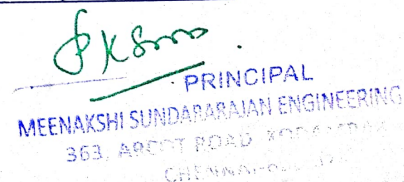 PRINCIPAL
MEENAKSHI SUNDARARAJAN ENGINEERING
363, ARCOT ROAD
CHENNAI